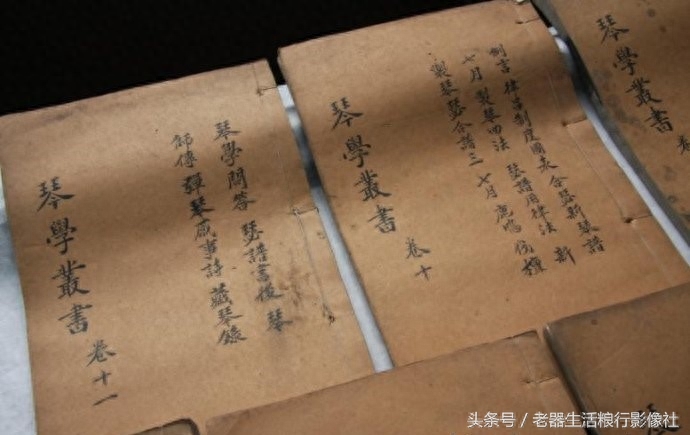 琴學叢書 卷
制言 律呂制度圖表 合瑟新琴譜
七月 製琴四法 瑟譜用律法 新
製琴瑟合譜三 七月 鹿鳴 伐檀
琴學叢書 卷十
琴學問答 瑟譜書後 琴
師傳 彈琴感事詩 藏琴錄
琴學叢書 卷十一
头条号 / 老器生活粮行影像社